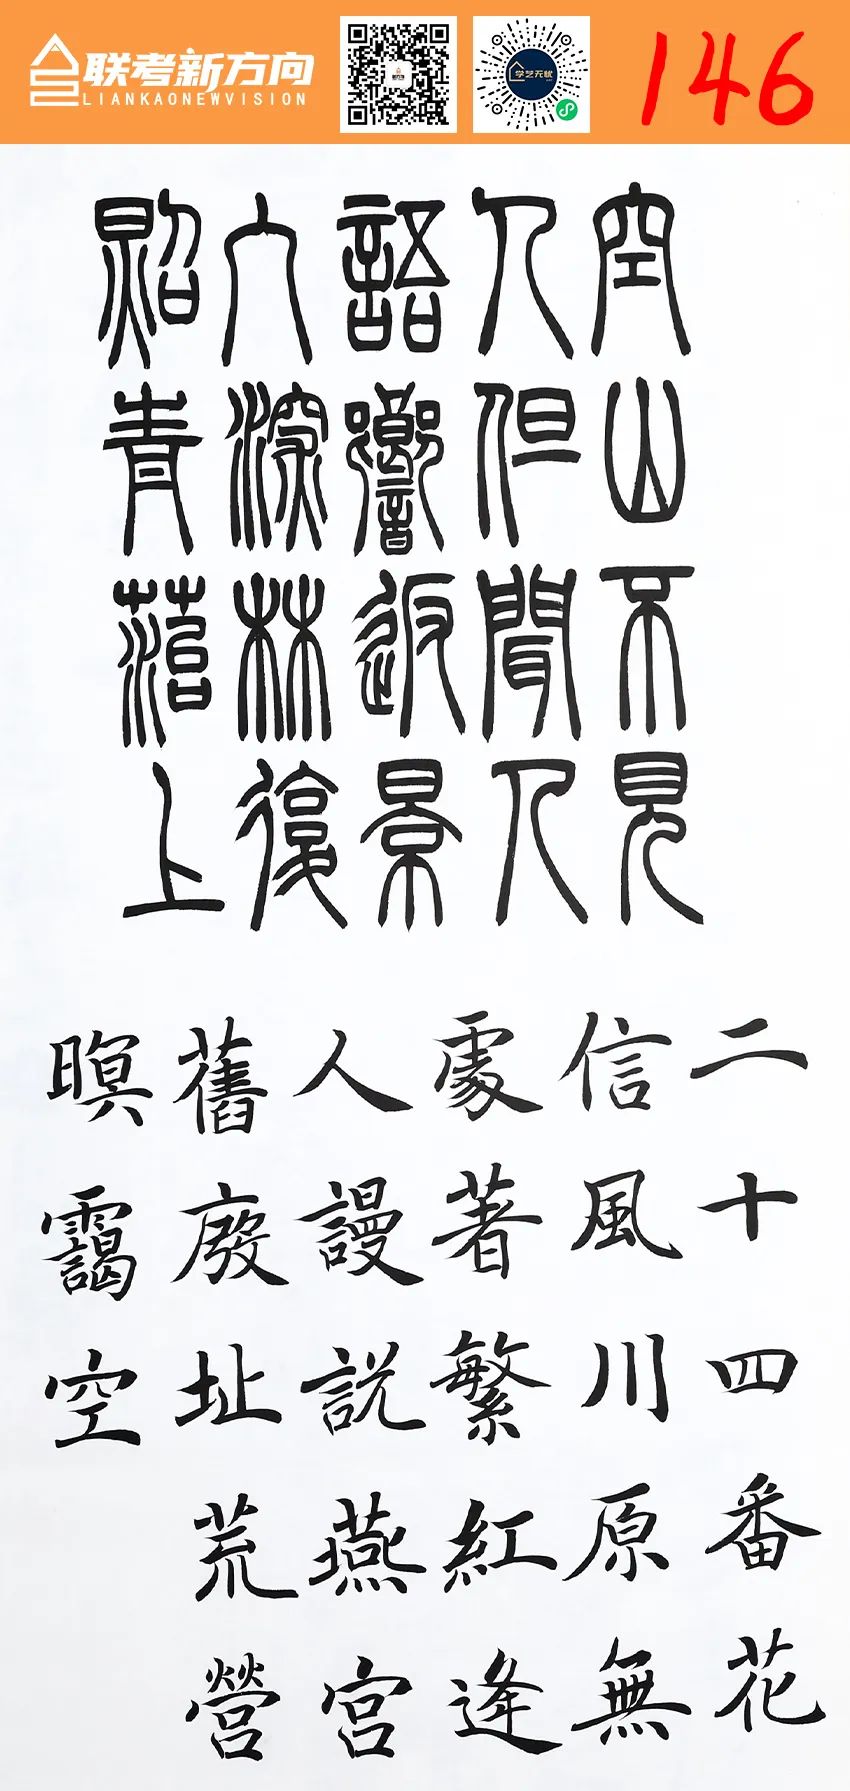 联考新方向
LIANKAONEWVISION
学艺无忧
146
空山不見
人但聞人
語響返景
入深林復
照青菭上
二十四番花
信風川原無
處著繁紅逢
人謾説燕宮
舊廢址荒營
暝靄空